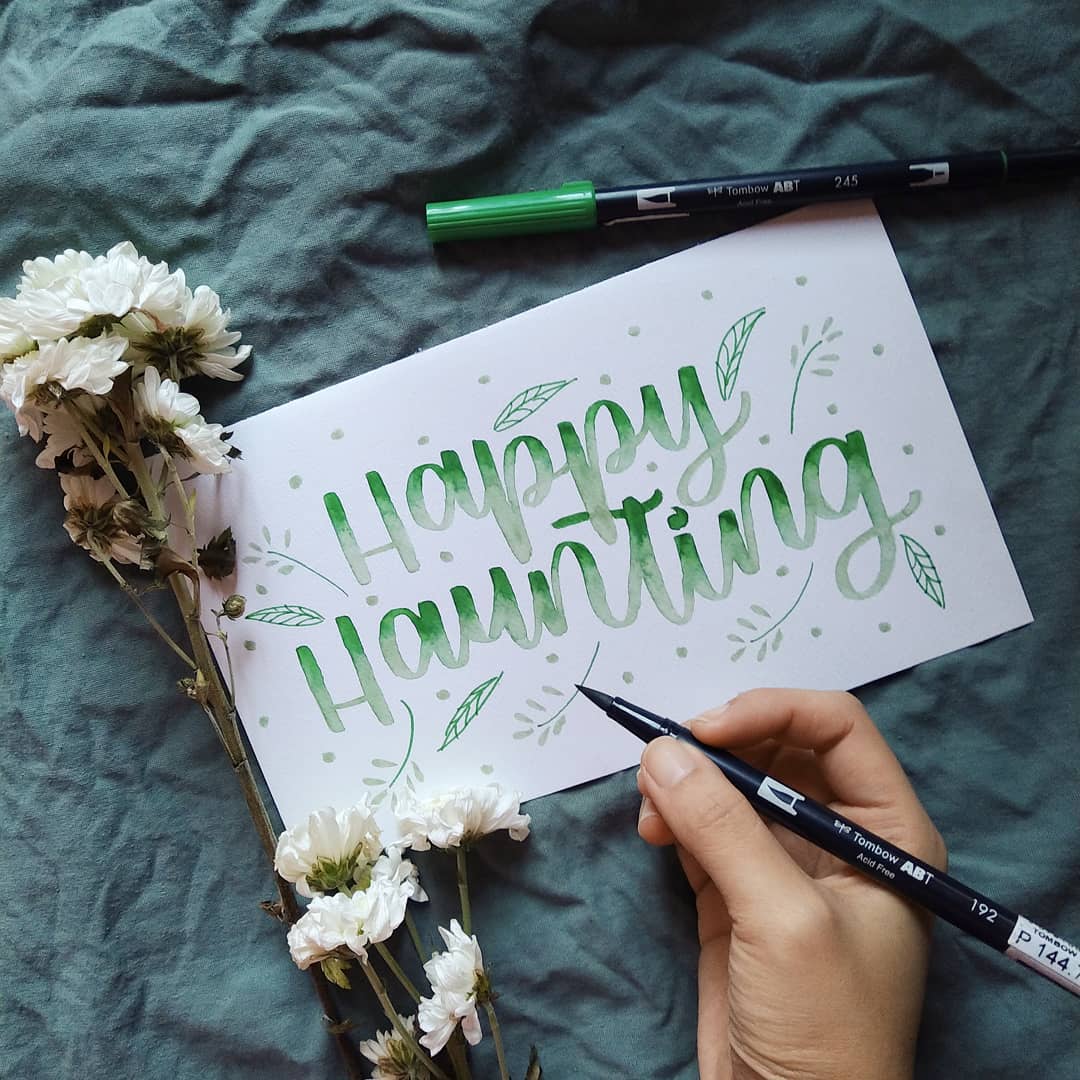 Tombow ABT 245
Acid Free
Happy
Haunting
Tombow ABT 192
Acid Free
TOMBOW
P 144.